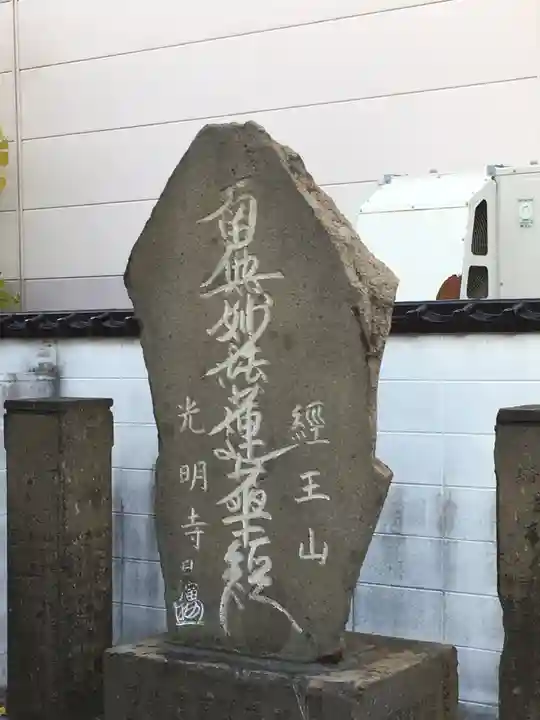 經王山
南無妙法蓮華經
光明寺日